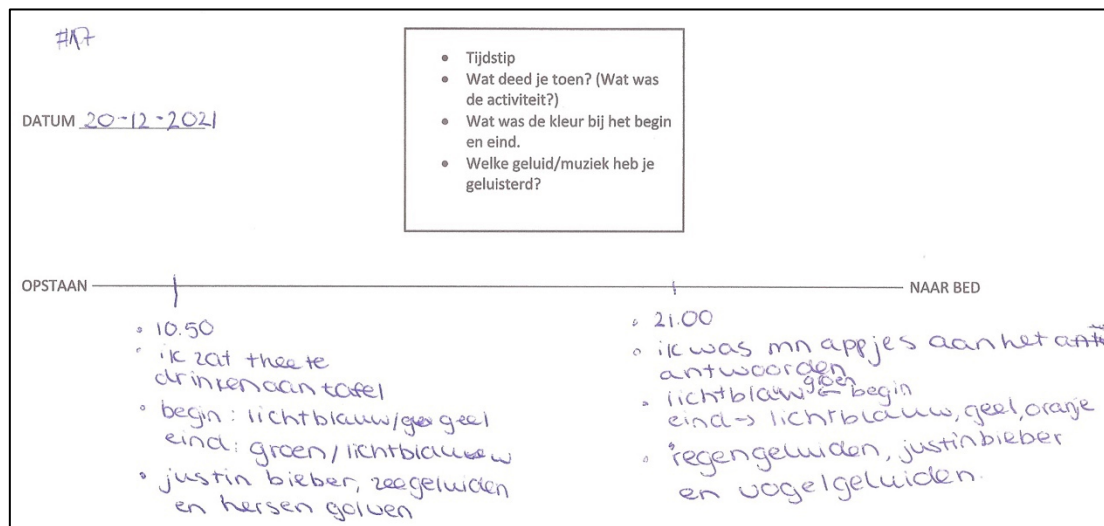 #17
• Tijdstip
• Wat deed je toen? (Wat was
de activiteit?)
• Wat was de kleur bij het begin
en eind.
• Welke geluid/muziek heb je
geluisterd?
DATUM 20-12-2021
OPSTAAN
NAAR BED
• 10.50
• ik zat thee te
drinken aan tafel
• begin: lichtblauw/ geel
eind: groen/lichtblauw
• justin bieber, zeegeluiden
en hersen golven
• 21.00
• ik was mn appjes aan het
antwoorden
• lichtblauw groen ← begin
eind → lichtblauw, geel, oranje
• regengeluiden, justin bieber
en vogelgeluiden.